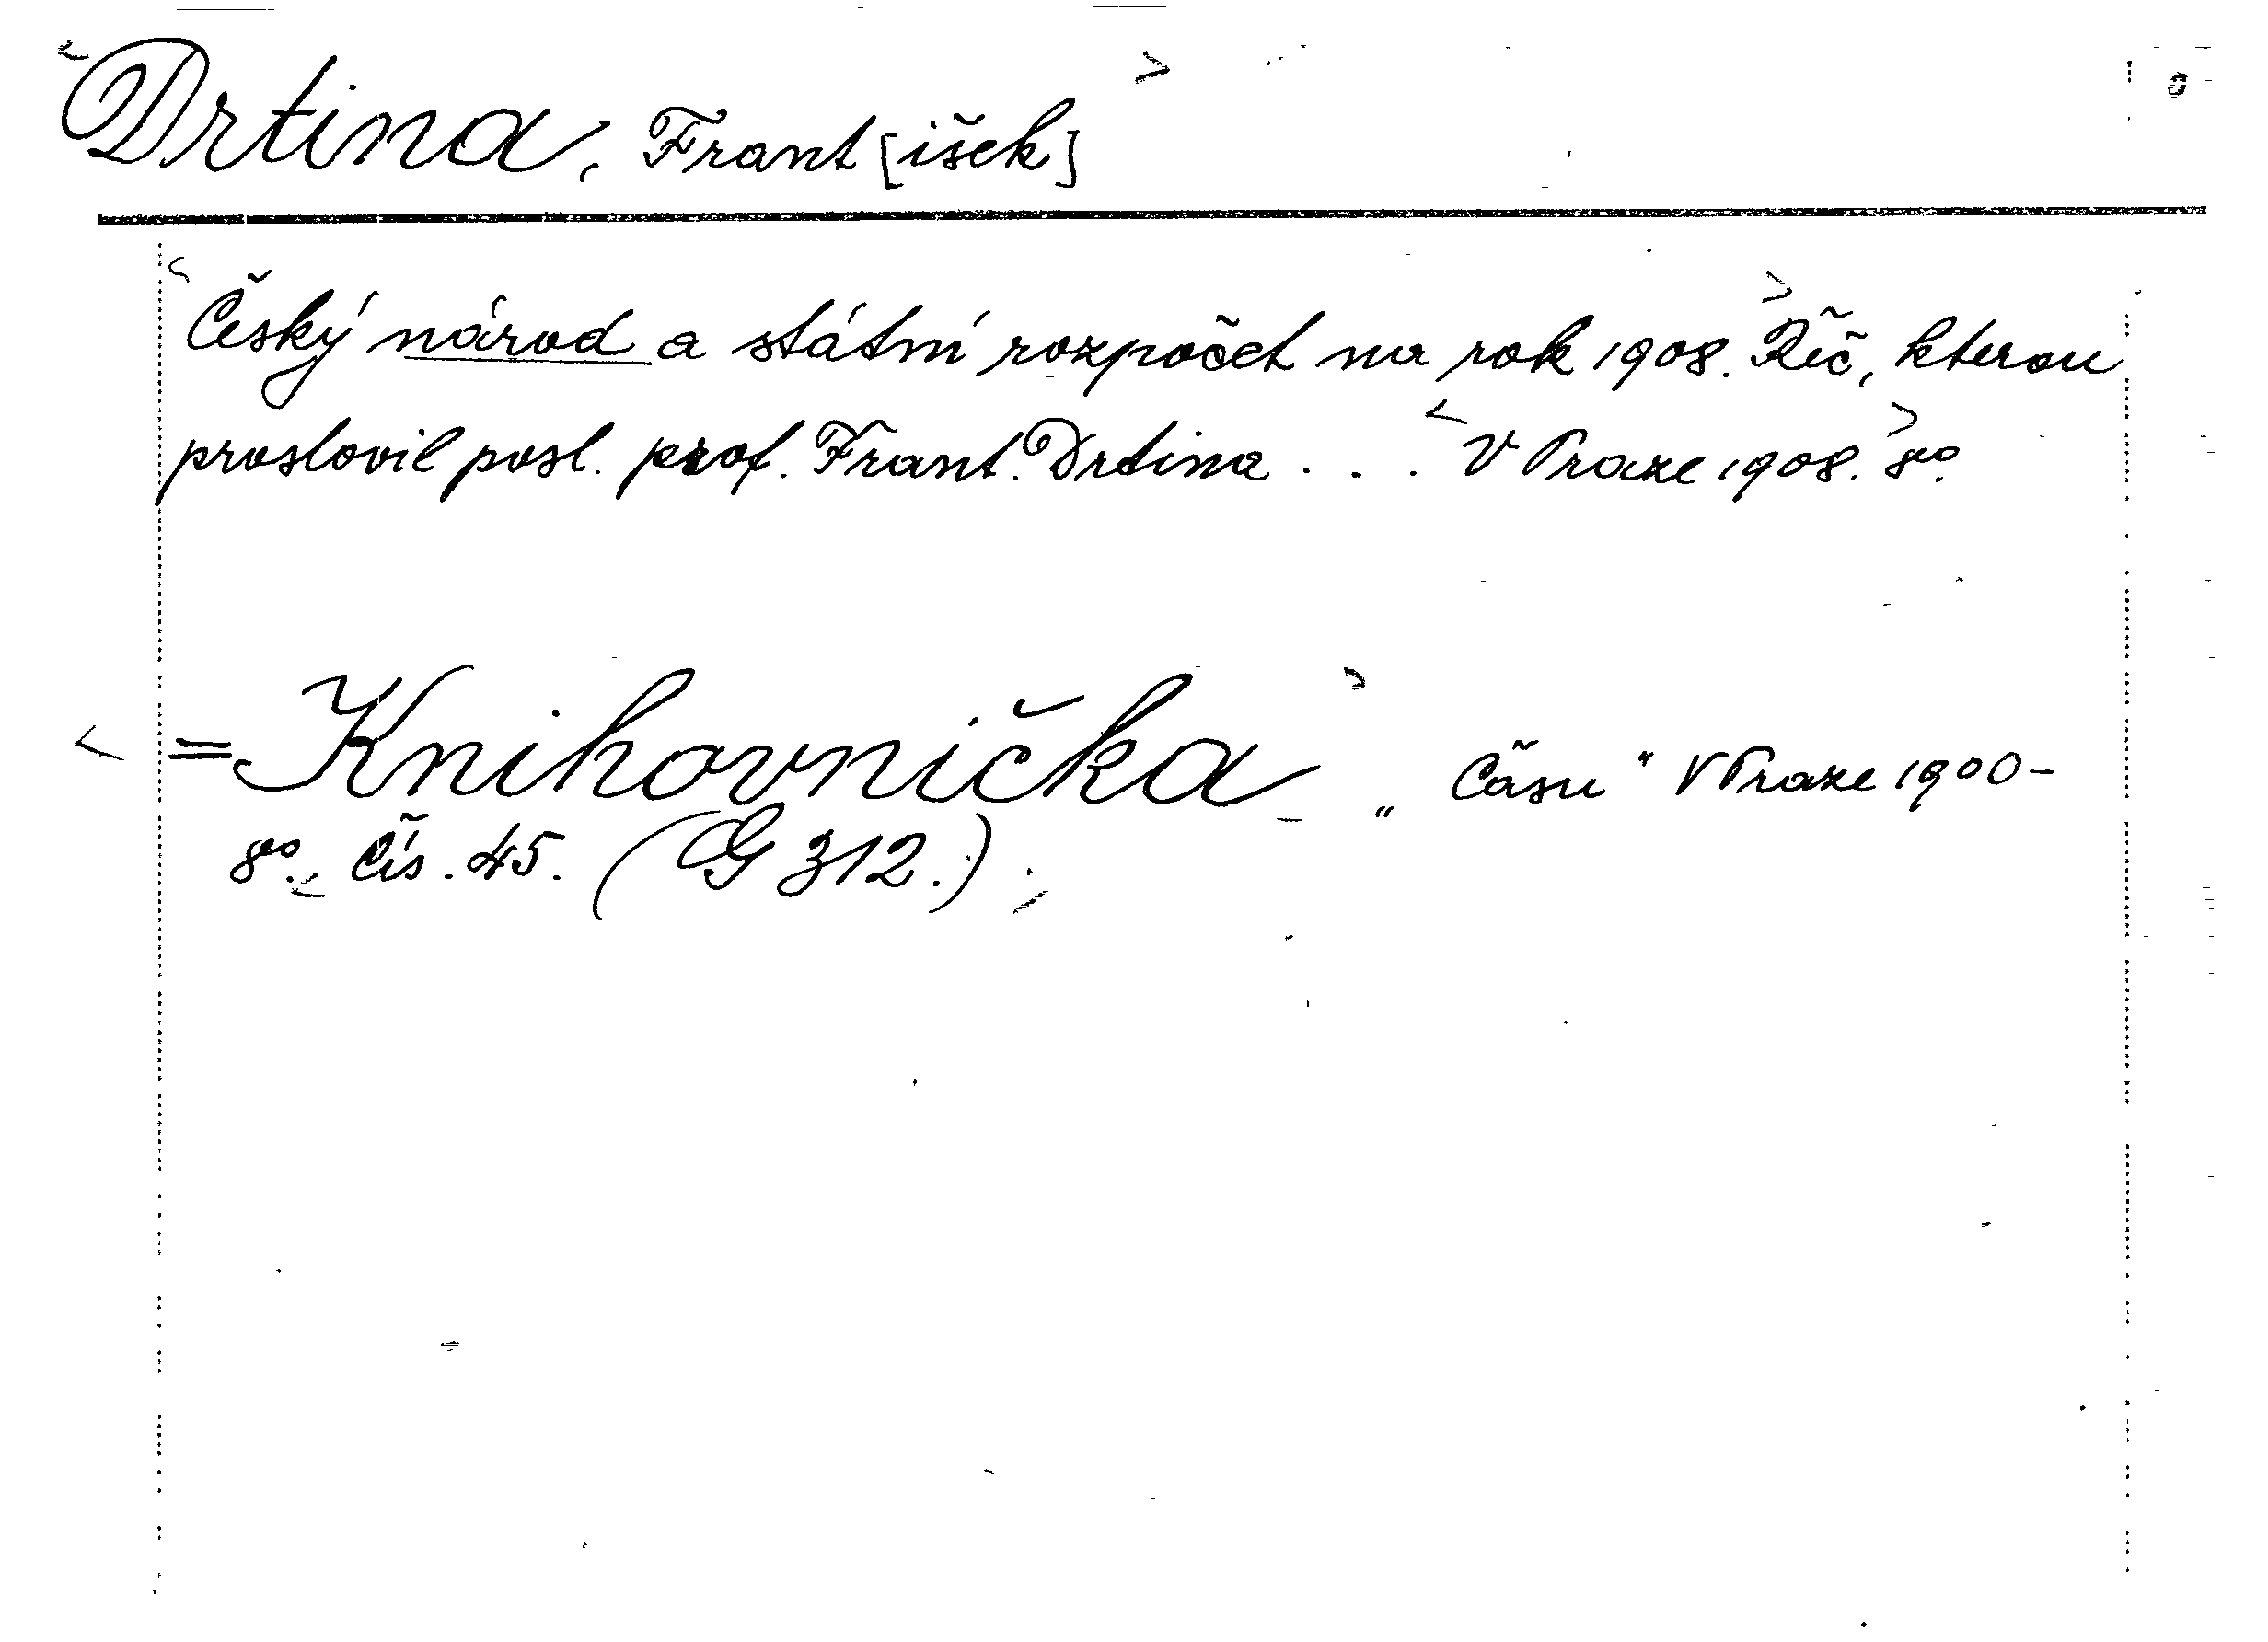 Drtina, Frant[išek]
Český národ a státní rozpočet na rok 1908. Řeč, kterou
proslovil posl. prof. Frant. Drtina . . . V Praze 1908. 8º.
=Knihovnička „Času“ V Praze 1900-
8º. Čís. 45. (G 312.)